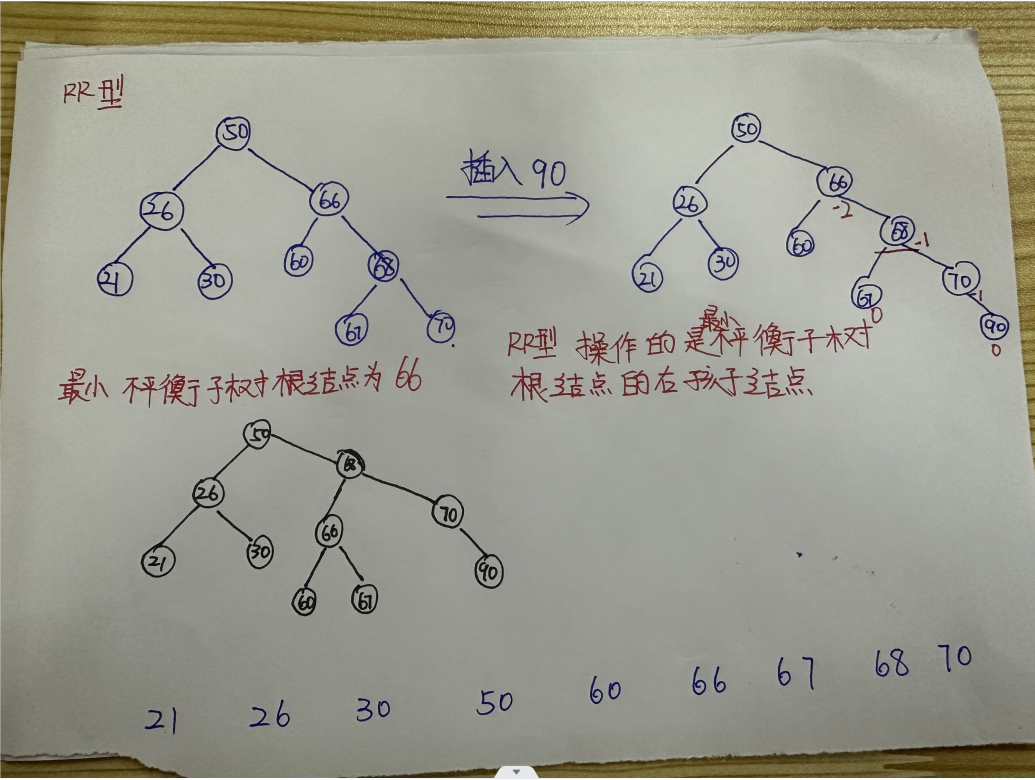 RR型
50
26 66
21 30 60 68
67 70
插入 90
50
26 66 -2
21 30 60 68 -1
67 0 70 -1
90 0
最小 不平衡子树根结点为 66
RR型 操作的是最小不平衡子树
根结点的右孩子结点
50
26 68
21 30 66 70
60 67 90
21 26 30 50 60 66 67 68 70